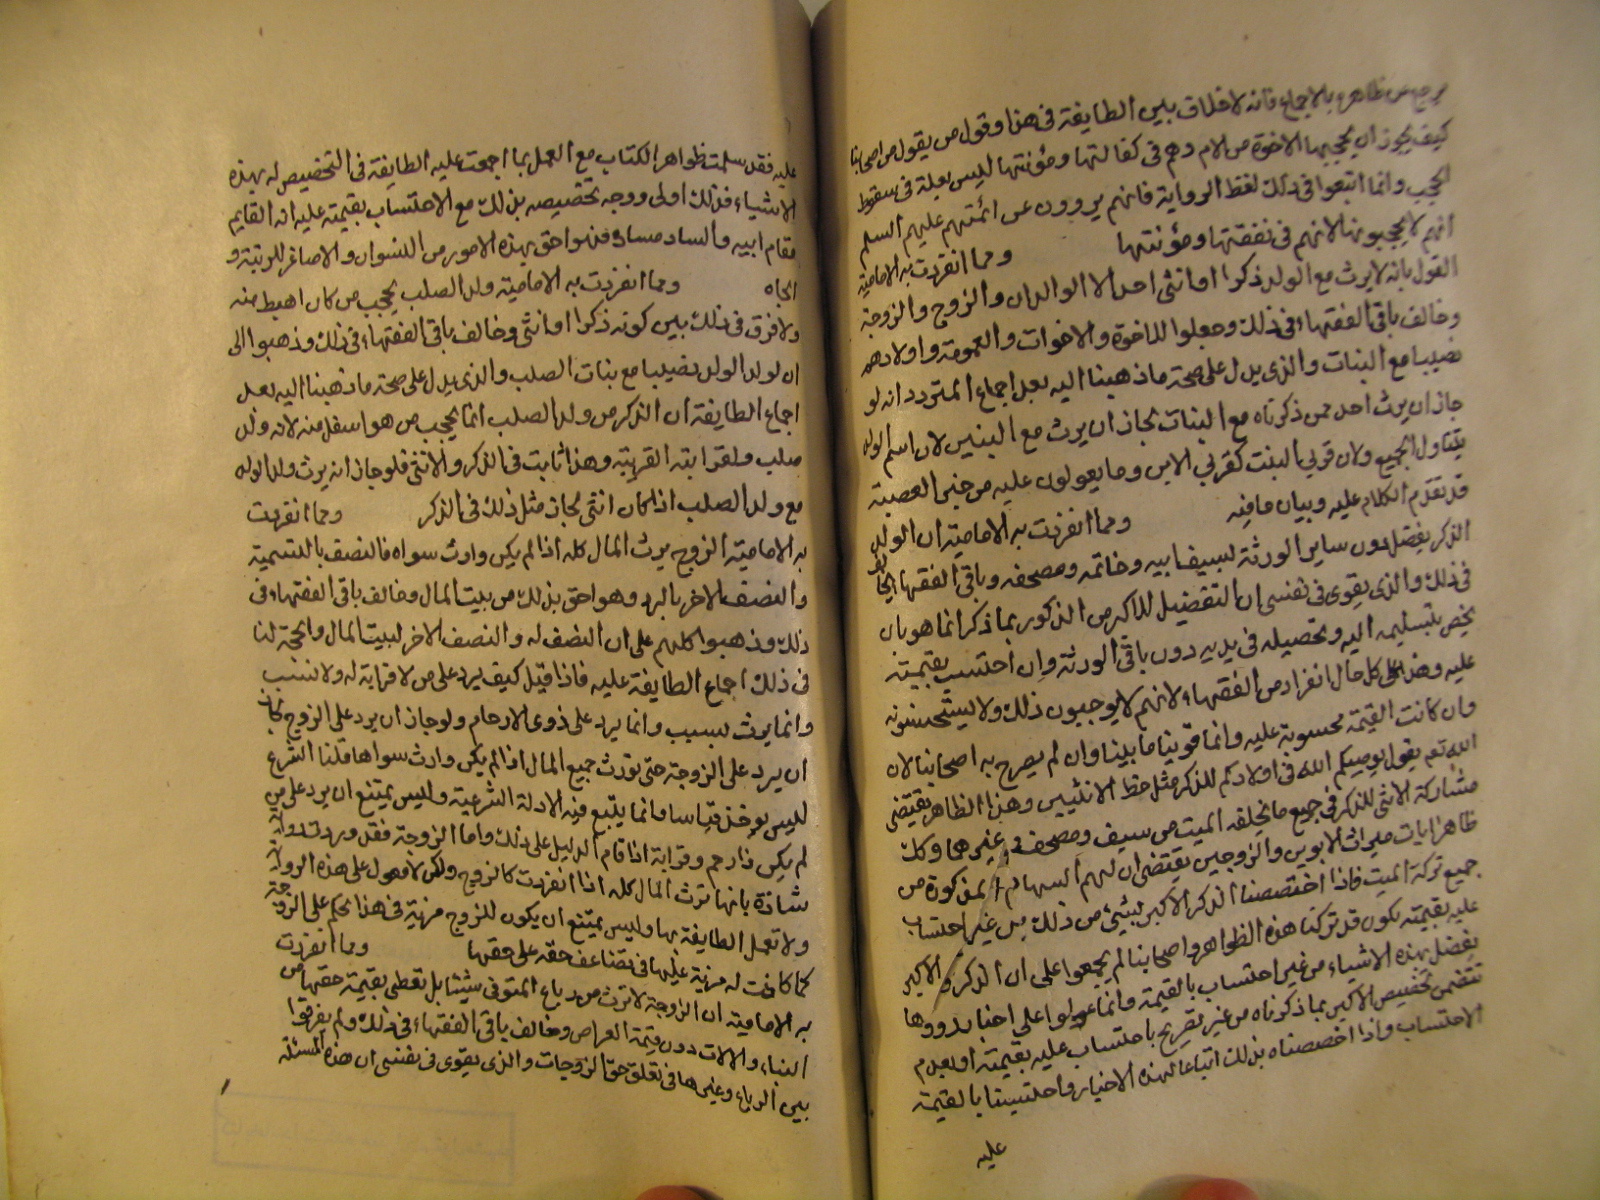 نرجع عن ظاهره بالاجماع فانه لا خلاف بين الطايفة في هذا وقول من يقول من اصحابنا
كيف يجوز ان يحجبها الاخوة من الام وهم في كفالتها ومؤنتها ليس بعلة في سقوط
الحجب وانما اتبعوا في ذلك لفظ الرواية فانهم يروون عن ائمتهم عليهم السلم
انهم لا يحجبونها لانهم في نفقتها ومؤنتها ومما انفردت به الامامية
القول بانه لا يرث مع الولد ذكرا او انثى احد الا الوالدان والزوج والزوجة
وخالف باقي الفقهاء في ذلك وجعلوا للاخوة والاخوات والعمومة واولادهم
نصيبا مع البنات والذي يدل على صحة ما ذهبنا اليه بعد اجماع المتردد انه لو
جاز ان يرث احد ممن ذكرناه مع البنات لجاز ان يرث مع البنين لان اسم الولد
يتناول الجميع ولان قربي البنت كقربي الابن وما يعولون عليه من خبر العصبة
قد تقدم الكلام عليه وبيان ما فيه ومما انفردت به الامامية ان الولد
الذكر يفضل دون ساير الورثة بسيف ابيه وخاتمه ومصحفه وباقي الفقها يخالفو
في ذلك والذي يقوى في نفسي ان التفضيل للاكبر من الذكور بما ذكر انما هو بان
يخص بتسليمه اليه وتحصيله في يديه دون باقي الورثة وان احتسب بقيمته
عليه وهذا على كل حال انفراد من الفقهاء لانهم لا يوجبون ذلك ولا يستحسنونه
وان كانت القيمة محسوبة عليه وانما قوينا ما بينا وان لم يصرح به اصحابنا لان
الله تع يقول يوصيكم الله في اولادكم للذكر مثل حظ الانثيين وهذا الظاهر يقتضي
مشاركة الانثى للذكر في جميع ما يخلفه الميت من سيف ومصحف وغيرهما وكك
ظاهر ايات ميراث الابوين والزوجين يقتضي ان لهم السهام المذكورة من
جميع تركة الميت فاذا اختصصنا الذكر الاكبر بشيء من ذلك من غير احتساب
عليه بقيمته يكون قد تركنا هذه الظواهر واصحابنا لم يجمعوا على ان الذكر الاكبر
يفضل بهذه الاشياء من غير احتساب بالقيمة وانما عولوا على اخبار رووها
تتضمن تخصيص الاكبر بما ذكرناه من غير تصريح باحتساب عليه بقيمته او بعدم
الاحتساب واذا اخصصناه بذلك اتباعا لهذه الاخبار واحتسبنا بالقيمة
عليه
عليه فقد سلمت ظواهر الكتاب مع العمل بما اجمعت عليه الطايفة في التخصيص له بهذه
الاشياء فذلك اولى ووجه تخصيصه بذلك مع الاحتساب بقيمته عليه انه القايم
مقام ابيه والساد مساده فهو احق بهذه الامور من النسوان والاصاغر للرتبة و
الجاه ومما انفردت به الامامية ولد الصلب يحجب من كان اهبط منه
ولا فرق في ذلك بين كونه ذكرا او انثى وخالف باقي الفقهاء في ذلك وذهبوا الى
ان لولد الولد نصيبا مع بنات الصلب والذي يدل على صحة ما ذهبنا اليه بعد
اجماع الطايفة ان الذكر من ولد الصلب انما يحجب من هو اسفل منه لانه ولد
صلب ولقرابته القريبة وهذا ثابت في الذكر والانثى فلو جاز انه يرث ولد الولد
مع ولد الصلب اذا كان انثى لجاز مثل ذلك في الذكر ومما انفردت
به الامامية الزوج يرث المال كله اذا لم يكن وارث سواه فالنصف بالتسمية
والنصف الاخر بالرد وهو احق بذلك من بيت المال وخالف باقي الفقهاء في
ذلك وذهبوا كلهم على ان النصف له والنصف الاخر لبيت المال والحجة لنا
في ذلك اجماع الطايفة عليه فاذا قيل كيف يرد على من لا قرابة له ولا نسب
وانما يرث بسبب وانما يرد على ذوي الارحام ولو جاز ان يرد على الزوج لجاز
ان يرد على الزوجة حتى تورث جميع المال اذا لم يكن وارث سواها قلنا الشرع
ليس يوخذ قياسا وانما يتبع فيه الادلة الشرعية وليس يمتنع ان يرد على من
لم يكن ذا رحم وقرابة اذا قام الدليل على ذلك واما الزوجة فقد وردت رواية
شاذة بانها ترث المال كله اذا انفردت كالزوج ولكن لا معول على هذه الرواية
ولا تعمل الطايفة بها وليس يمتنع ان يكون للزوج مزية في هذا الحكم على الزوجة
كما كانت له مزية عليها في تضاعف حقه على حقها ومما انفردت
به الامامية ان الزوجة لا ترث من رباع المتوفى شيئا بل تعطى بقيمة حقها من
البناء والالات دون قيمة العراص وخالف باقي الفقهاء في ذلك ولم يفرقوا
بين الرباع وغيرها في تعلق حق الزوجات والذي يقوى في نفسي ان هذه المسئلة